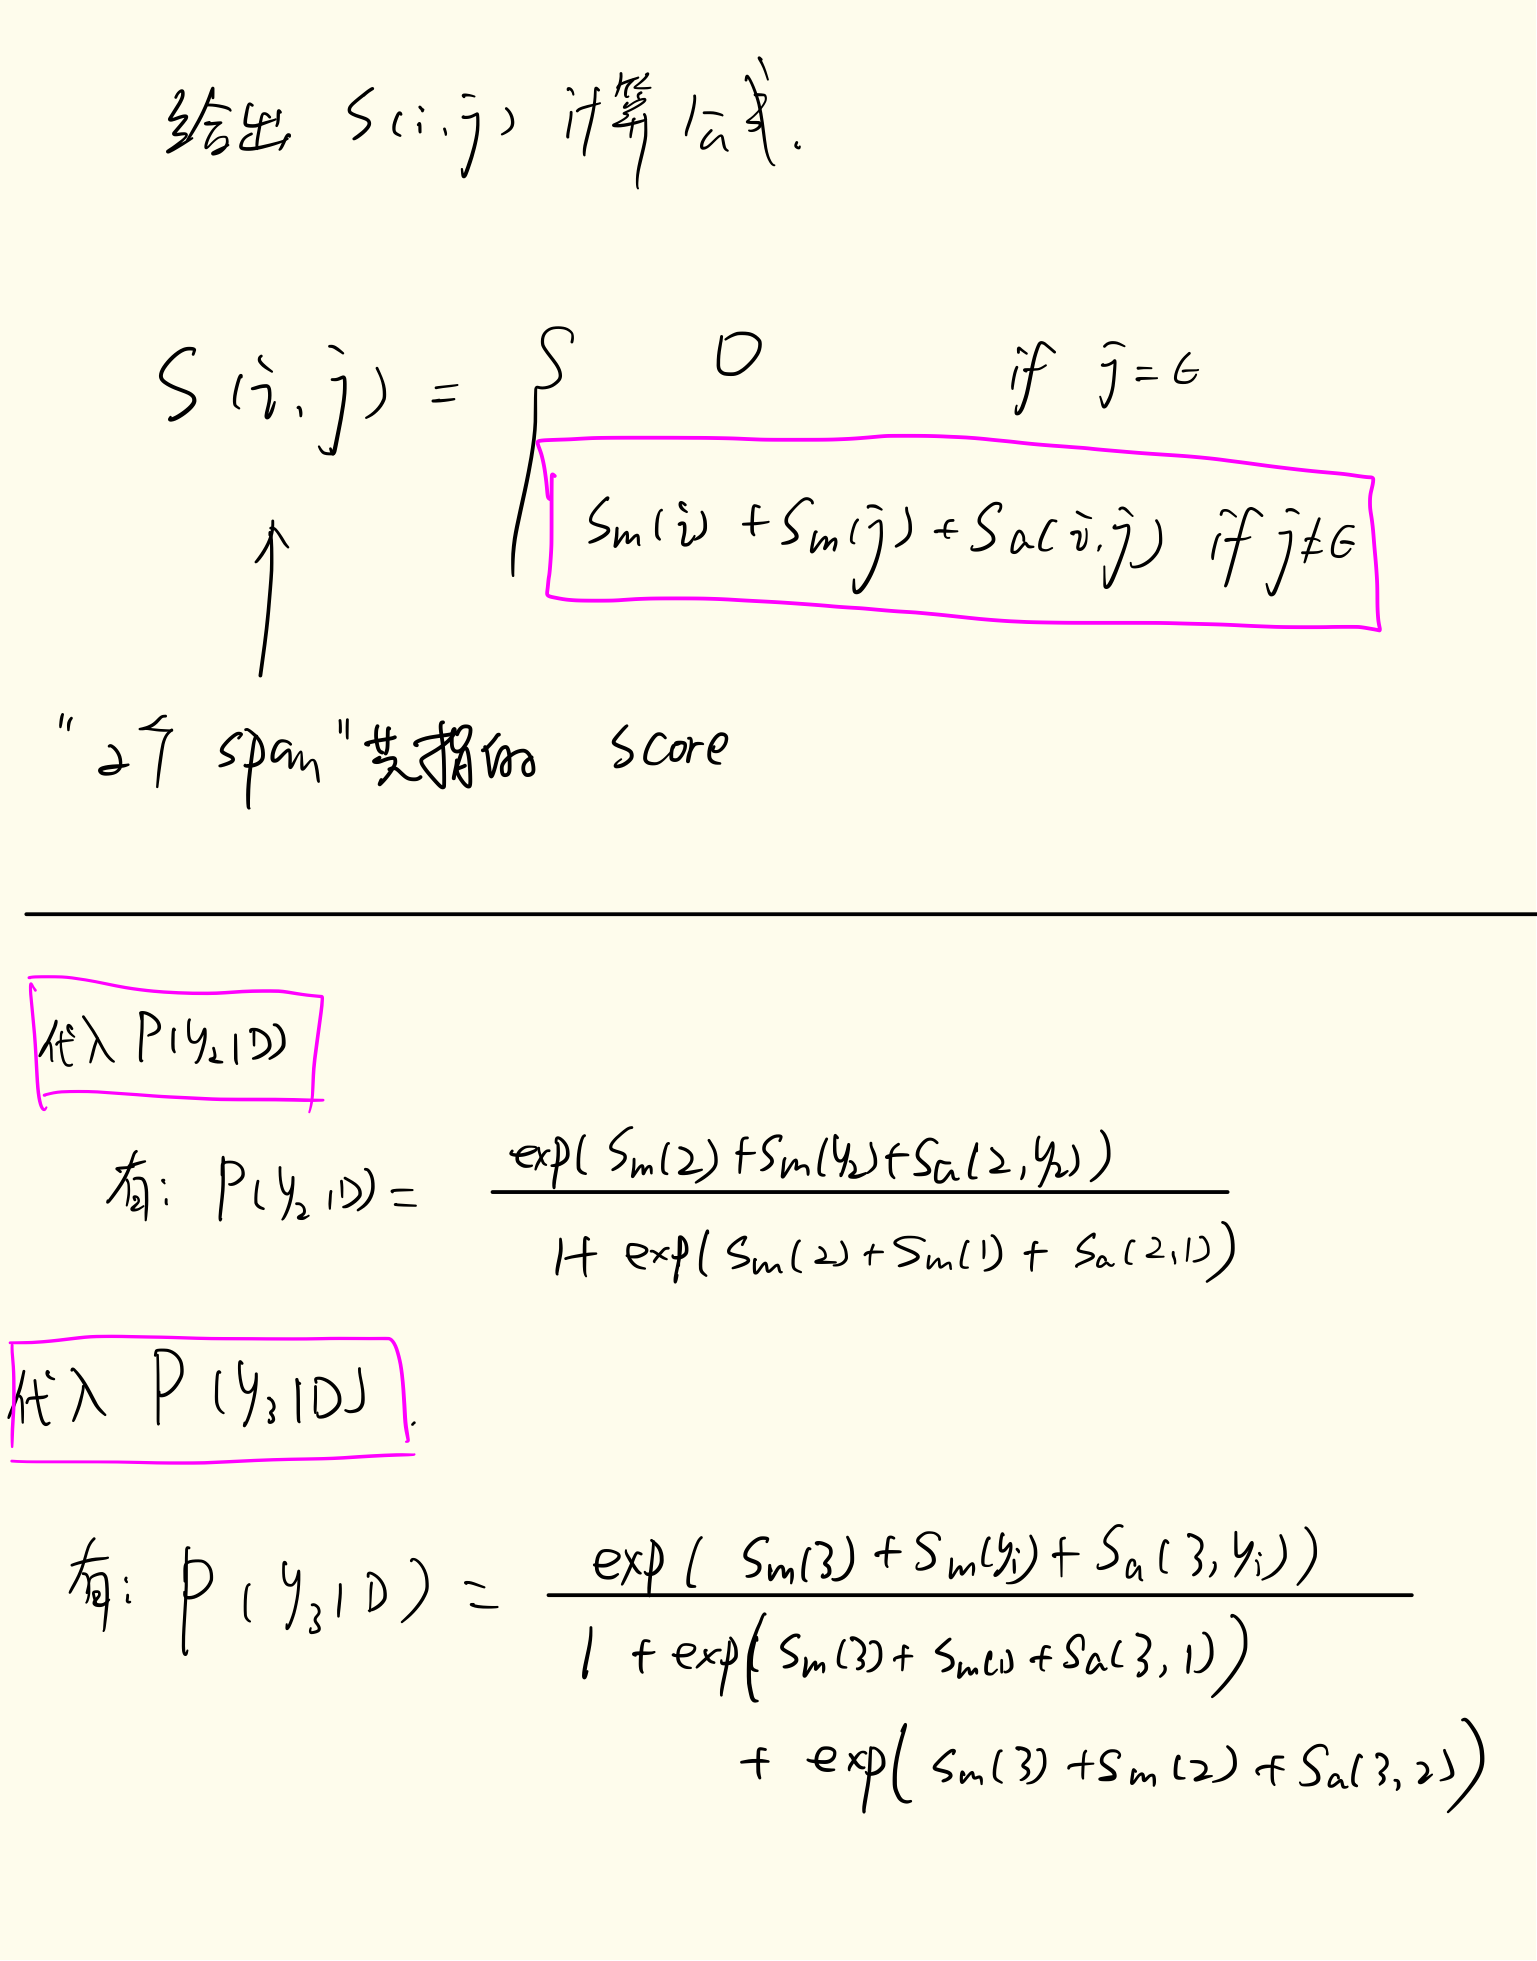 给出 S(i,j) 计算公式.
S(i,j) = { 0 if j=ϵ
Sm(i) + Sm(j) + Sa(i,j) if j≠ϵ
"2个 span"共指的 score
代入 P(y₂|D)
有: P(y₂|D) = exp(Sm(2)+Sm(y₂)+Sa(2,y₂))
1+ exp(Sm(2)+Sm(1) + Sa(2,1))
代入 P(y₃|D).
有: P(y₃|D) = exp( Sm(3)+Sm(yi)+Sa(3,yi))
1 + exp(Sm(3)+Sm(1)+Sa(3,1))
+ exp(Sm(3)+Sm(2)+Sa(3,2))